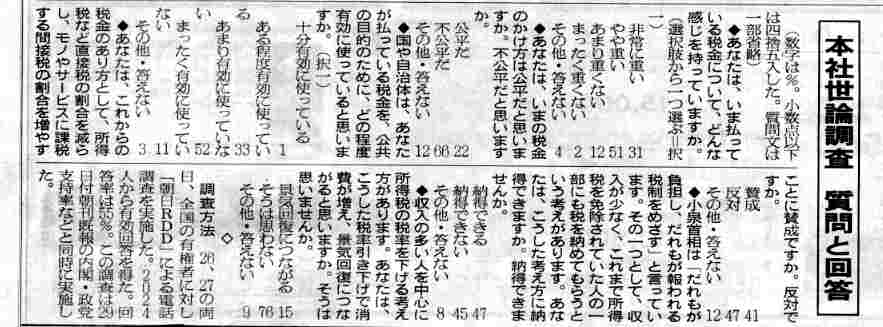 本社世論調査 質問と回答
(数字は%。小数点以下
は四捨五入した。質問文は
一部省略)
◆あなたは、いま払って
いる税金について、どんな
感じを持っていますか。
(選択肢から一つ選ぶ=択
一)
非常に重い 31
やや重い 51
あまり重くない 12
まったく重くない 2
その他・答えない 4
◆あなたは、いまの税金
のかけ方は公平だと思いま
すか。不公平だと思います
か。
公平だ 22
不公平だ 66
その他・答えない 12
◆国や自治体は、あなた
が払っている税金を、公共
の目的のために、どの程度
有効に使っていると思いま
すか。(択一)
十分有効に使っている
1
ある程度有効に使ってい
る 33
あまり有効に使っていな
い 52
まったく有効に使ってい
ない 11
その他・答えない 3
◆あなたは、これからの
税金のあり方として、所得
税など直接税の割合を減ら
し、モノやサービスに課税
する間接税の割合を増やす
ことに賛成ですか。反対で
すか。
賛成 41
反対 47
その他・答えない 12
◆小泉首相は「だれもが
負担し、だれもが報われる
税制をめざす」と言ってい
ます。その一つとして、収
入が少なく、これまで所得
税を免除されていた人の一
部にも税を納めてもらうと
いう考えがあります。あな
たは、こうした考え方に納
得できますか。納得できま
せんか。
納得できる 47
納得できない 45
その他・答えない 8
◆収入の多い人を中心に
所得税の税率を下げる考え
方があります。あなたは、
こうした税率引き下げで消
費が増え、景気回復につな
がると思いますか。そうは
思いませんか。
景気回復につながる 15
そうは思わない 76
その他・答えない 9
◇
調査方法 26、27の両
日、全国の有権者に対し
「朝日RDD」による電話
調査を実施した。2024
人から有効回答を得た。回
答率は55%。この調査は29
日付朝刊既報の内閣・政党
支持率などと同時に実施し
た。